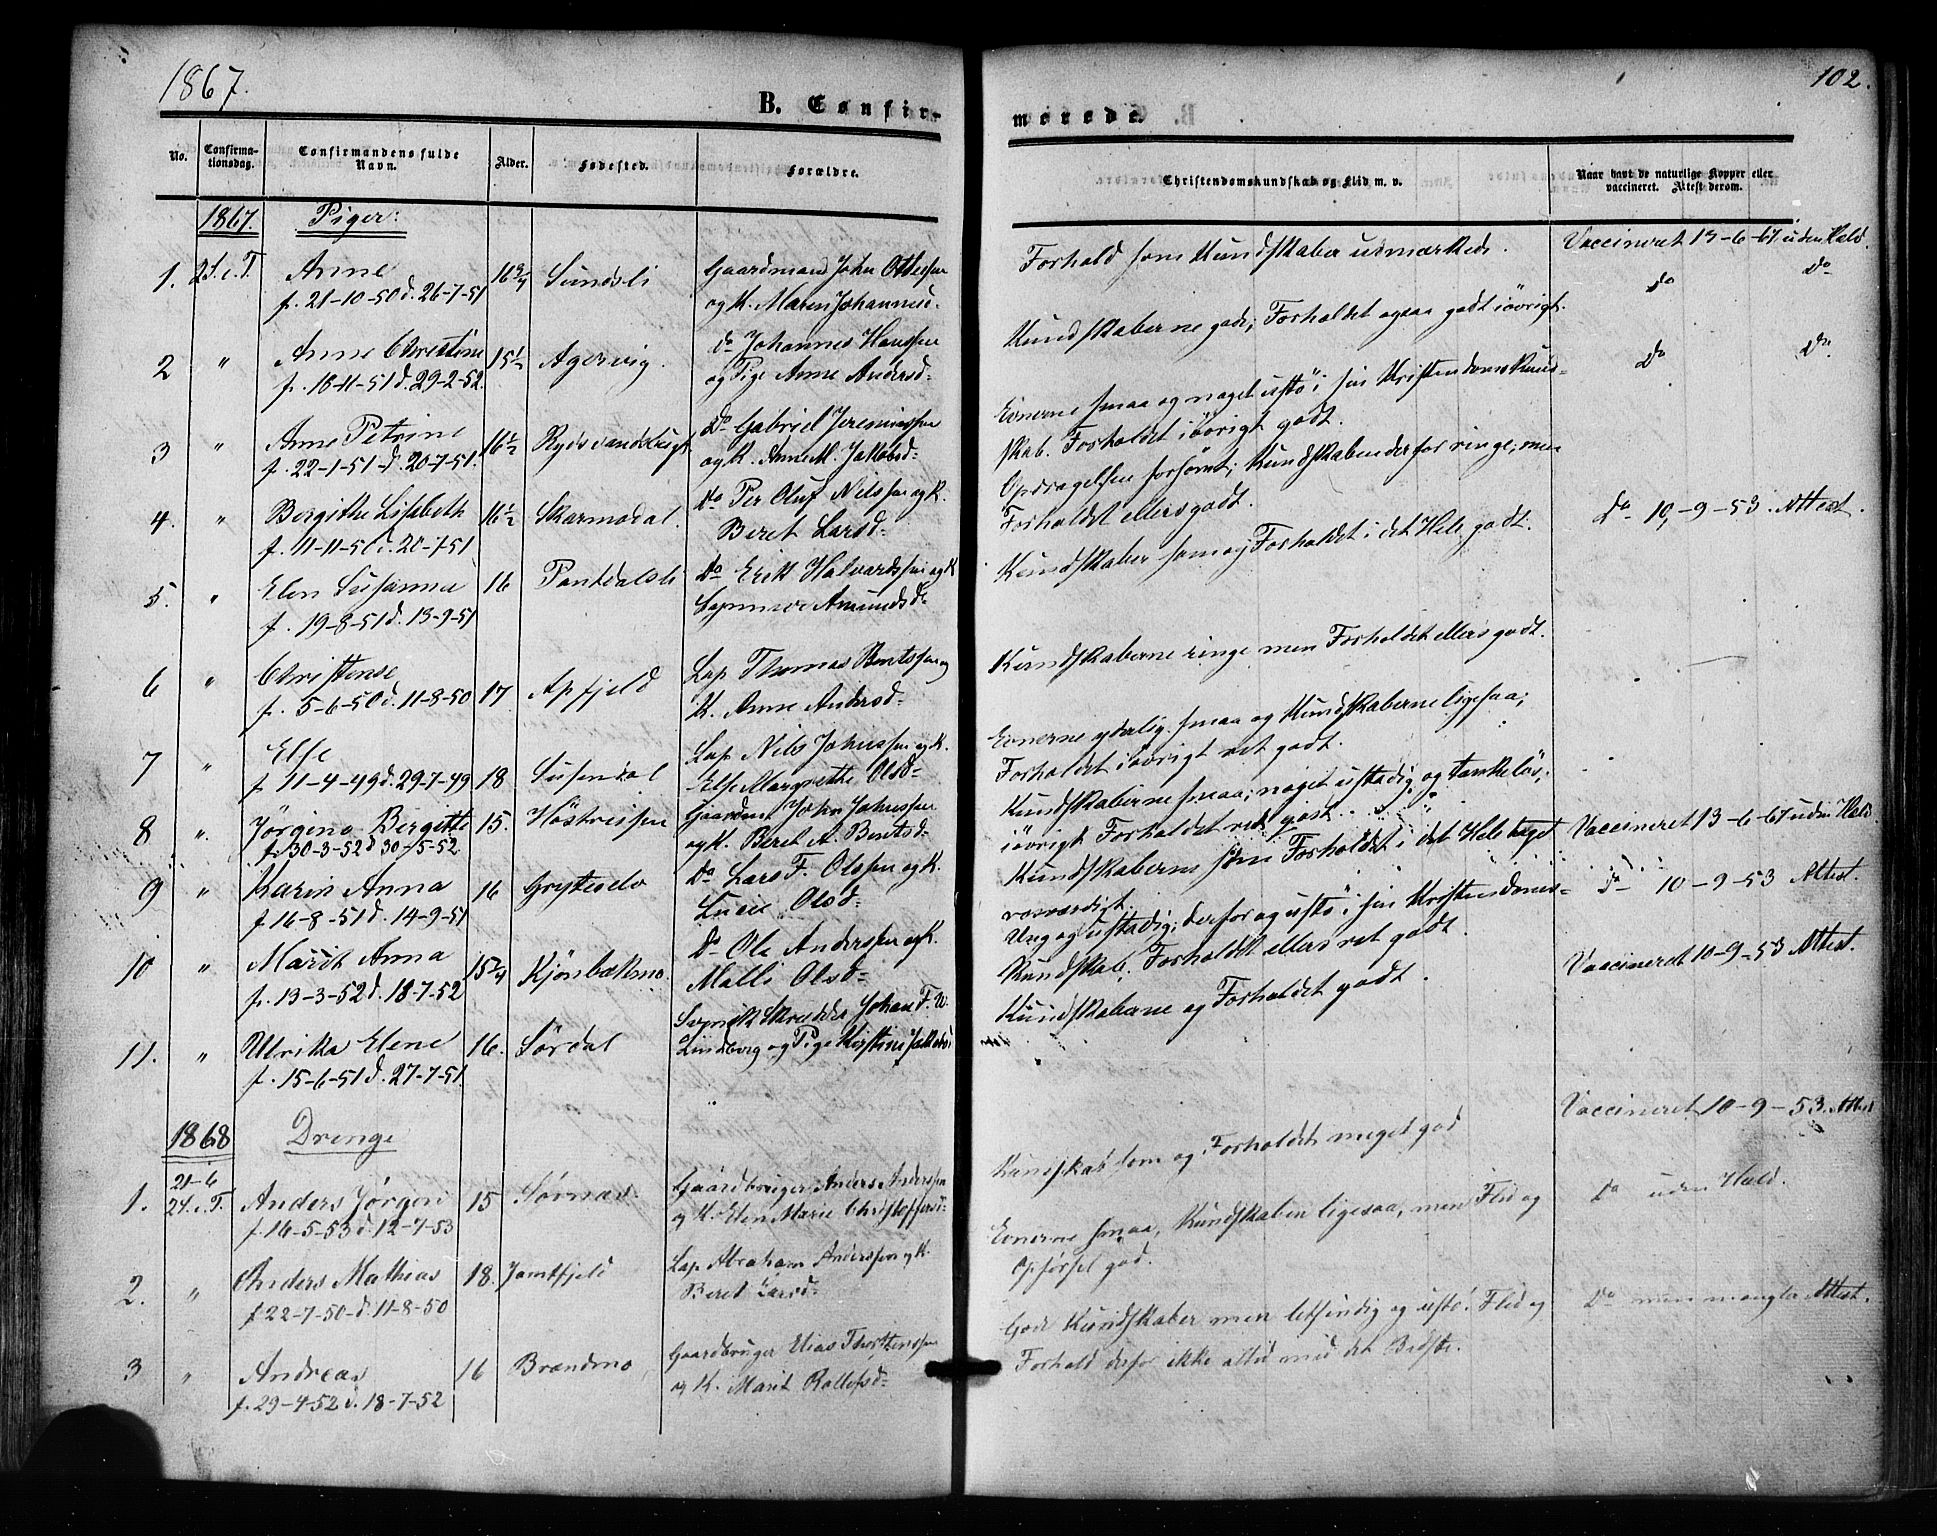 1867.
102.
B. Confir-
merede.
No.
Confirma-
tionsdag.
Confirmandens fulde
Navn.
Alder.
Fødested.
Forældre.
Christendomskundskab og Flid m. v.
Naar havt de naturlige Kopper eller
vaccineret. Attest derom.
1867. Piger:
1. 2 S. e. T. Anne 16 3/4 Sundsli Gaardmand John Ottersen
f. 21-10-50 d. 26-7-51 og K. Maren Johannesd.
Forhold som Kundskaber udmærkede. Vaccineret 13-6-67 uden Hald.
2 " Anne Christine 15 1/2 Agervig. Do Johannes Hanssen
f. 10-11-51 d. 29-2-52. og Pige Anne Andersd-
Kundskaberne gode; Forholdet ogsaa godt iøvrigt. Do Do
3 " Anne Petrine 16 1/2 Do Gabriel Jeremiassen
f. 22-1-51 d. 20-7-51. og K. Anne M. Jakobsd-
Evnerne smaa og noget ustø i sin Kristendomskund-
skab. Forholdet iøvrigt godt. Do Do
4. " Bergithe Lisbeth 16 1/2 Skarmodal. Do Per Oluf Nilssen og K.
f. 11-11-50 d. 20-7-51 Beret Larsd-
Opdragelsen forsømt; Kundskaben derfor ringe, men
Forholdet ellers godt.
5. " Elen Susanna 16 Do Erik Halvardssen og K
f. 19-8-51 d. 13-9-51 Amundsd-
Kundskaber som og Forholdet i det Hele godt. Do 10-9-53. Attest.
6 " Christense 17 Apfjeld Lap Thomas Bentssen og
f. 5-6-50 d. 11-8-50 K. Anne Andersd-
Kundskaberne ringe men Forholdet ellers godt.
7 " Else 18 Susendal Lap Nils Johnssen og K.
f 11-4-49 d. 29-7-49 Else Margrethe Olsd-
Evnerne yderlig smaa og Kundskaberne ligesaa;
Forholdet iøvrigt ret godt.
8 " Jørgine Bergitte 15. Gaardmd John Johnssen
f. 30-3-52 d 30-5-52 og K. Beret A. Bentsd-
Kundskaberne smaa; noget ustadig og tankeløs;
iøvrigt Forholdet ret godt. Vaccineret 13-6-67 uden Hald.
9 " Karin Anna 16 Gryteselv Do Lars F. Olssen og K.
f 16-8-51 d. 14-9-51 Olsd-
Kundskaberne som Forholdet i det Hele taget
rosværdigt. Do 10-9-53 Attest.
10 " Marit Anna 15 1/4 Kjønbækmo. Do Ole Anderssen og K.
f. 13-3-52 d. 18-7-52 Malli Olsd-
Ung og ustadig; derfor og ustø i sin Kristendoms-
Kundskab. Forholdet ellers ret godt. Vaccineret 10-9-53 Attest.
11. " Ulrika Elene 16. Sørdal Svensk Skrædder Johan F. W.
f. 15-6-51 d. 27-7-51 Lindberg og Pige
Kundskaberne og Forholdet godt.
1868 Drenge
1. 21-6 2 S. e. T. Anders Jørgen 15 Sørnæs. Gaardbruger Anders Anderssen
f. 16-5-53 d. 12-7-53 og K. Elen Marie Christoffersd-
Kundskab som og Forholdet meget god Vaccineret 10-9-53. Attest
2. " Anders Mathias 18. Jamtfjeld Lap Abraham Anderssen og K.
f 22-7-50 d. 11-8-50 Beret Larsd-
Evnerne smaa, Kundskaben ligesaa, men Flid og
Opførsel god. Do uden Hald.
3 " Andreas 16 Brandmo Gaardbruger Elias Thorstenssen
f. 29-4-52 d. 18-7-52 og K. Marit Rollefsd-
Gode Kundskaber men letsindig og ustø. Flid og
Forhold derfor ikke altid med det Bedste. Do men mangler Attest.